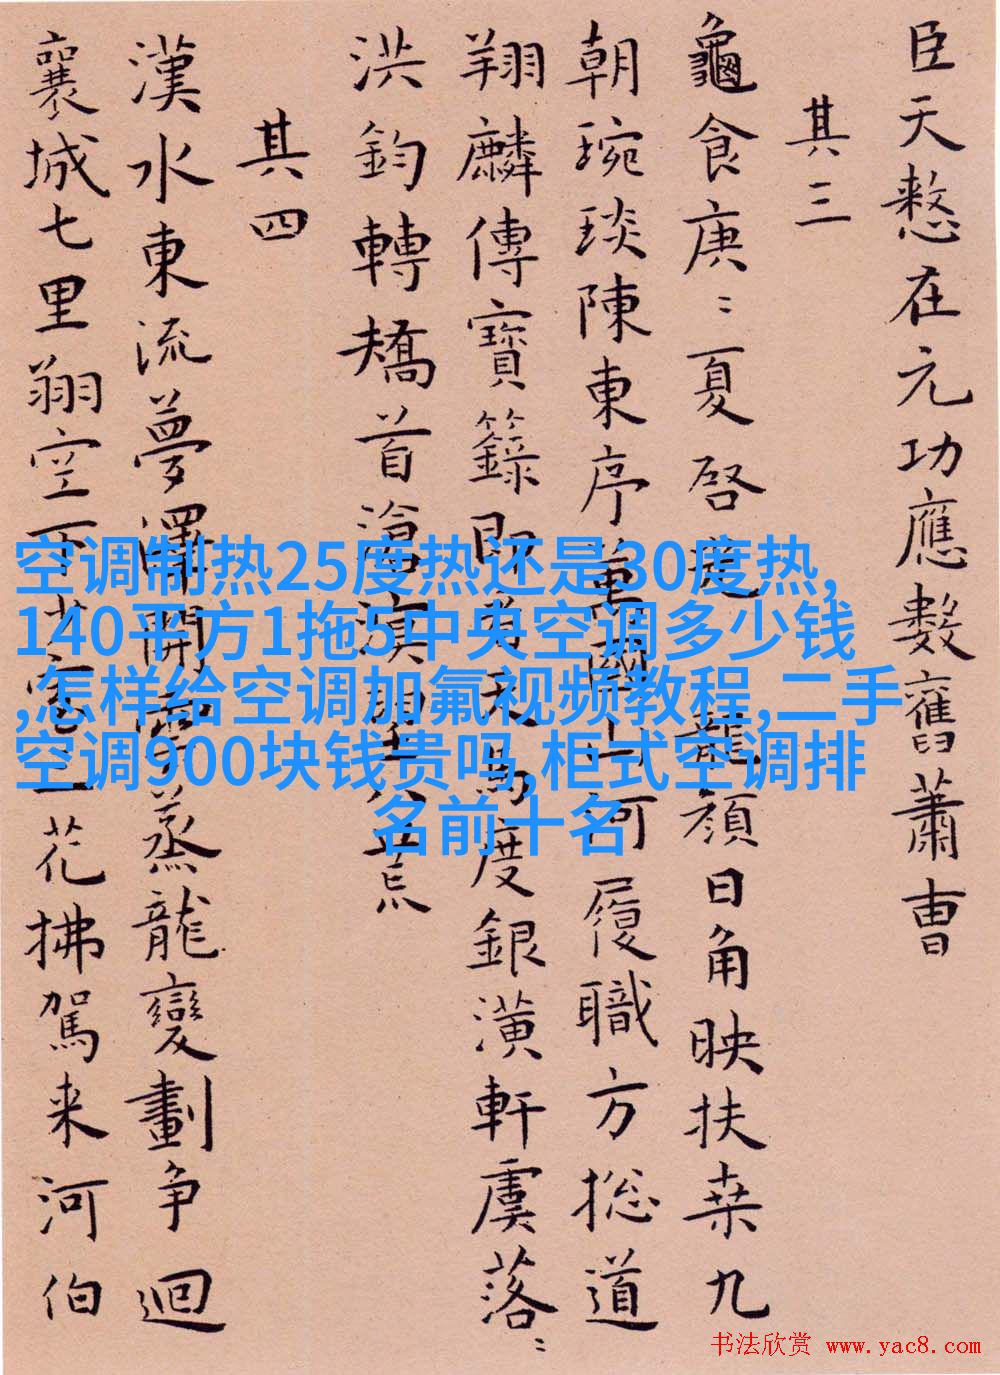 臣天憖在元功應數舊蕭曹
其三
龜食庚〻夏啓 龍顏日角映扶桒九
朝琬琰陳東序萬國山河履職方捴道
翔麟傳寶籙 馬度銀潢軒虞落〻
洪鈞轉矯首滄溟 八荒
其四
漢水東流夢澤開 蒸龍變劃争迴
襄城七里翔空下 花拂駕来河伯
空调制热25度热还是30度热,
140平方1拖5中央空调多少钱
,怎样给空调加氟视频教程,二手
空调900块钱贵吗,柜式空调排
名前十名
书法欣赏 www.yac8.com